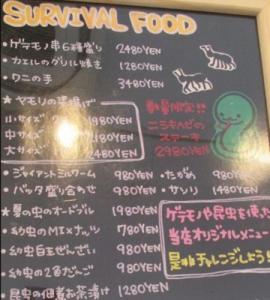 SURVIVAL FOOD
・ゲテモノ串6種盛り 2480YEN
・カエルのグリル焼き 1280YEN
・ワニの手 3480YEN
★ヤモリの唐揚げ
小サイズ 980YEN
中サイズ 1980YEN
大サイズ 2480YEN
数量限定!!
ニシキヘビの
ステーキ
2980YEN
・ジャイアントミルワーム 980YEN
・バッタ盛り合わせ 980YEN
・たがめ 980YEN
・サソリ 1480YEN
★夏の虫のオードブル 1980YEN
・幼虫のMIXナッツ 780YEN
・幼虫白玉ぜんざい 980YEN
・幼虫の2色だんご 980YEN
・昆虫の佃煮お茶漬け 1280YEN
ゲテモノや昆虫を使った
当店オリジナルメニュー
是非チャレンジしよう!!